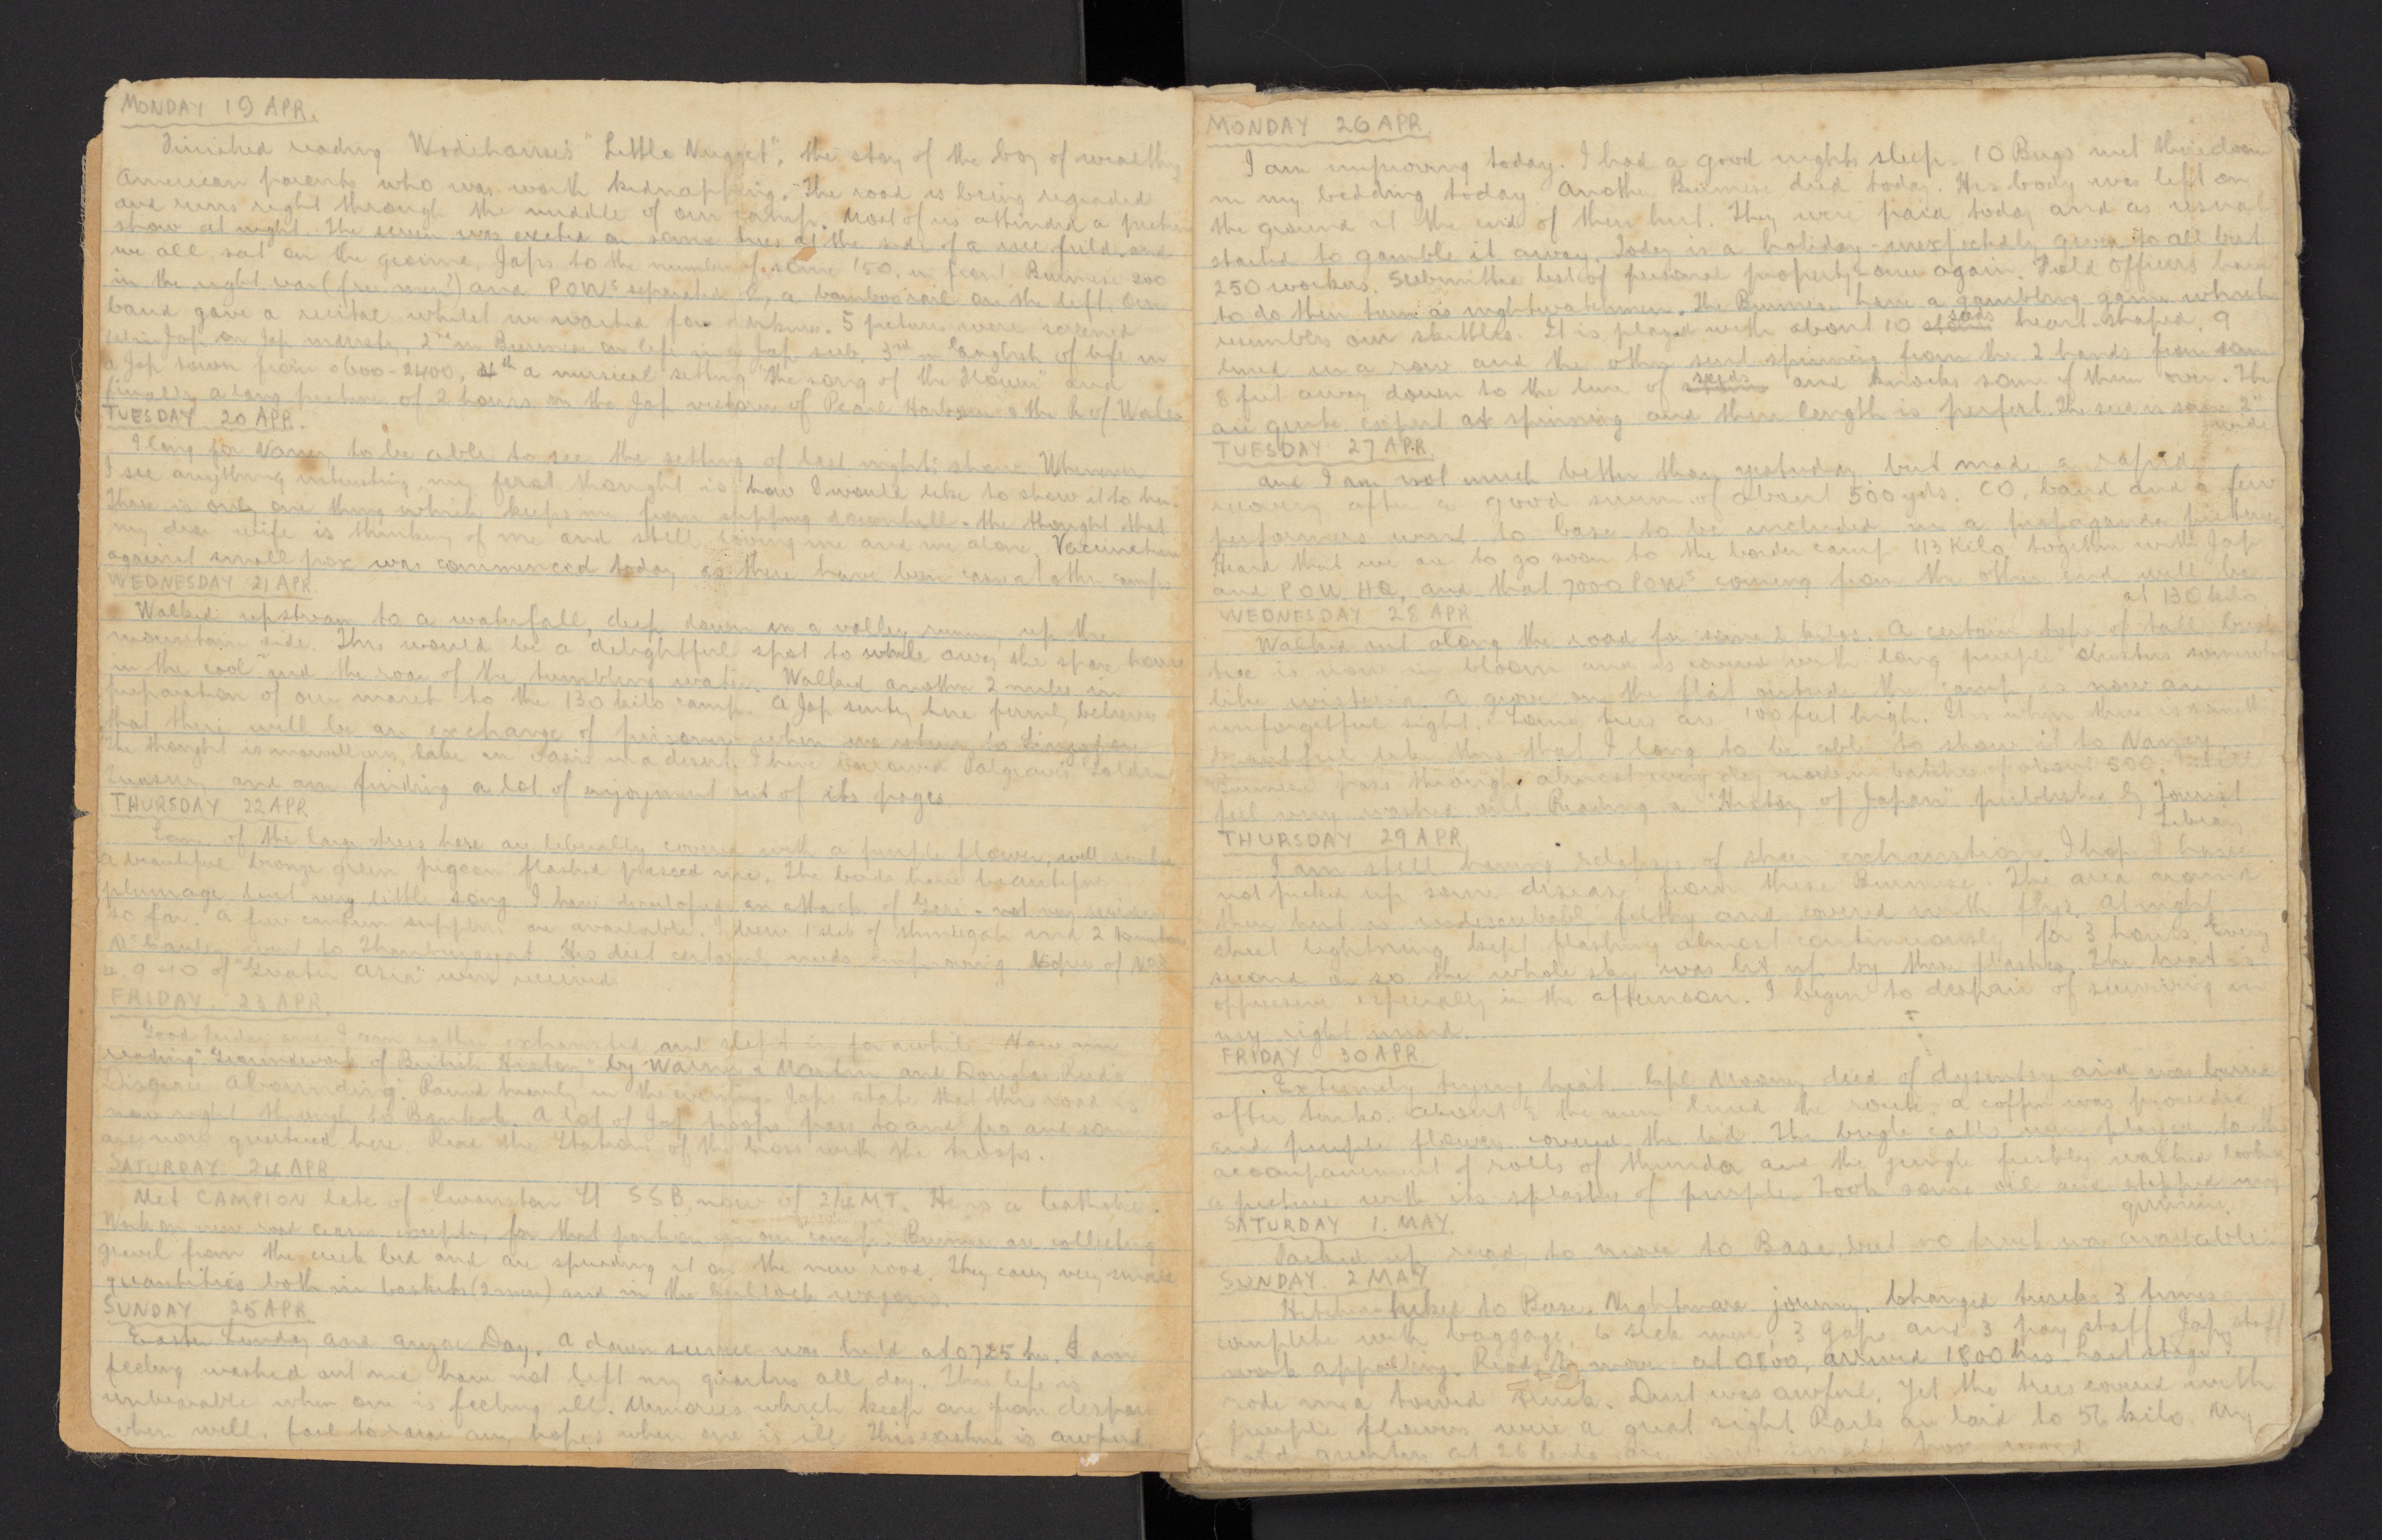 MONDAY 19 APR.
Finished reading Wodehouse's "Little Nugget", the story of the boy of wealthy
American parents who was worth kidnapping. The road is being regraded
and runs right through the middle of our camp. Most of us attended a picture
show at night. The screen was erected on some trees at the side of a rice field and
we all sat on the ground, Japs to the number of some 150 in front, Burmese 200
in the right rear (free men?) and POWs separated by a bamboo rail on the left. Our
band gave a recital whilst we waited for darkness. 5 pictures were screened
Jap on Jap 2nd in Burmese on life in a Jap sub, 3rd in English of life in
a Jap town from 0600-2400, 4th a musical setting "the song of the flower" and
finally a long picture of 2 hours on the Jap victories of Pearl Harbour & the P. of Wales
TUESDAY 20 APR.
I long for Nancy to be able to see the setting of last night's show. Whenever
I see anything interesting, my first thought is how I would like to show it to her.
There is only one thing which keeps me from slipping downhill - the thought that
my dear wife is thinking of me and still loving me and me alone. Vaccination
against small pox was commenced today as there have been cases at other camps
WEDNESDAY 21 APR.
Walked upstream to a waterfall, deep down in a valley running up the
mountain side. This would be a delightful spot to while away the spare hours
in the cool and the roar of the tumbling water. Walked another 2 miles in
preparation of our march to the 130 kilo camp. A Jap sentry here firmly believes
that there will be an exchange of prisoners when we return to Singapore
The thought is marvellous, like an oasis in a desert. I have borrowed Palgrave's Golden
Treasury and am finding a lot of enjoyment out of its pages
THURSDAY 22 APR
Some of the large trees here are liberally covered with a purple flower,
A beautiful bronze green pigeon flashed passed me. The birds have beautiful
plumage but very little song. I have developed an attack of - not very serious
so far. A few canteen supplies are available. I drew 1 slab of shindegah and 2
went to Thanbyuzayat. His diet certainly needs improving. Copies of Nos
4, 9 & 10 of "Greater Asia" were received
FRIDAY. 23 APR.
Good Friday and I am rather exhausted and slept in for awhile. Now am
reading "Groundwork of British History" by Warner & Martin and Douglas Reed's
Disgrace Abounding". Rained heavily in the evening. Japs state that this road is
now right through to Bankok. A lot of Jap troops pass to and fro and some
are now quartered here. Read the Stations of the Cross with the troops.
SATURDAY 24 APR
Met CAMPION late of Swanston St SSB, now of 2/4 M.T. He is a Catholic.
Work on new road ceases except for that portion in our camp. Burmese are collecting
gravel from the creek bed and are spreading it on the new road. They carry very small
quantities both in baskets (2 men) and in the bullock wagons.
SUNDAY 25 APR.
Easter Sunday and Anzac Day. A dawn service was held at 0725 hrs. I am
feeling washed out and have not left my quarters all day. This life is
unbearable when one is feeling ill. Memories which keep one from despair
when well, fail to raise any hopes when one is ill. This existence is awful
MONDAY 26 APR.
I am improving today. I had a good nights sleep. 10 Bugs met their doom
in my bedding today. Another Burmese died today. His body was left on
the ground at the end of their hut. They were paid today and as usual
started to gamble it away. Today is a holiday - unexpectedly given to all but
250 workers. Submitted list of personal property - once again. Field Officers have
to do their turn as nightwatchmen. The Burmese have a gambling game which
resembles our skittles. It is played with about 10 seeds heart-shaped, 9
lined in a row and the other sent spinning from the 2 hands from some
8 feet away down to the line of seeds and knocks some of them over. The
are quite expert at spinning and there length is perfect. The seed is some 2"
wide
TUESDAY 27 APR.
and I am not much better than yesterday but made a rapid
recovery after a good swim of about 500 yds. CO, band and a few
performers went to base to be included in a propaganda picture.
Heard that we are to go soon to the border camp 113 Kilo together with Jap
and P.O.W. HQ, and that 7000 POWs coming from the other end will be
at 130 kilo
WEDNESDAY 28 APR
Walked out along the road for some 2 kilos. A certain type of tall
tree is now in bloom and is covered with long purple clusters somewhat
like wisteria. A grove on the flat outside the camp is now an
unforgetful sight. Some trees are 100 feet high. It is when there is something
beautiful like this that I long to be able to show it to Nancy.
Burmese pass through almost every day now in batches of about 500. I still
feel very washed out. Reading a "History of Japan" published by Tourist
Library
THURSDAY 29 APR
I am still having relapses of sheer exhaustion. I hope I have
not picked up some disease from these Burmese. The area around
their hut is indescribably filthy and covered with flys. At night
sheet lightning kept flashing almost continuously for 3 hours. Every
second or so the whole sky was lit up by these flashes. The heat is
oppressive especially in the afternoon. I begin to despair of surviving in
my right mind.
FRIDAY 30 APR.
Extremely trying heat. Cpl Mooney died of dysentry and was buried
after tenko. About ½ the men lined the route, a coffin was provided
and purple flowers covered the lid. The bugle calls were played to the
accompaniment of rolls of thunder and the jungle freshly washed looked
a picture with its splashes of purple. Took some oil and stopped my
quinine.
SATURDAY 1. MAY.
Packed up ready to move to Base, but no truck was available.
SUNDAY. 2 MAY
Hitch-hiked to Base. Nightmare journey. Changed trucks 3 times
complete with baggage, 6 sick men, 3 Japs and 3 pay staff. Jap staff
work appalling. Ready to move at 0800, arrived 1800 hrs. Last stage
rode in a towed truck. Dust was awful. Yet the trees covered with
purple flowers were a great sight. Rails are laid to 56 kilo. My
old quarters at 26 kilo are small pox ward